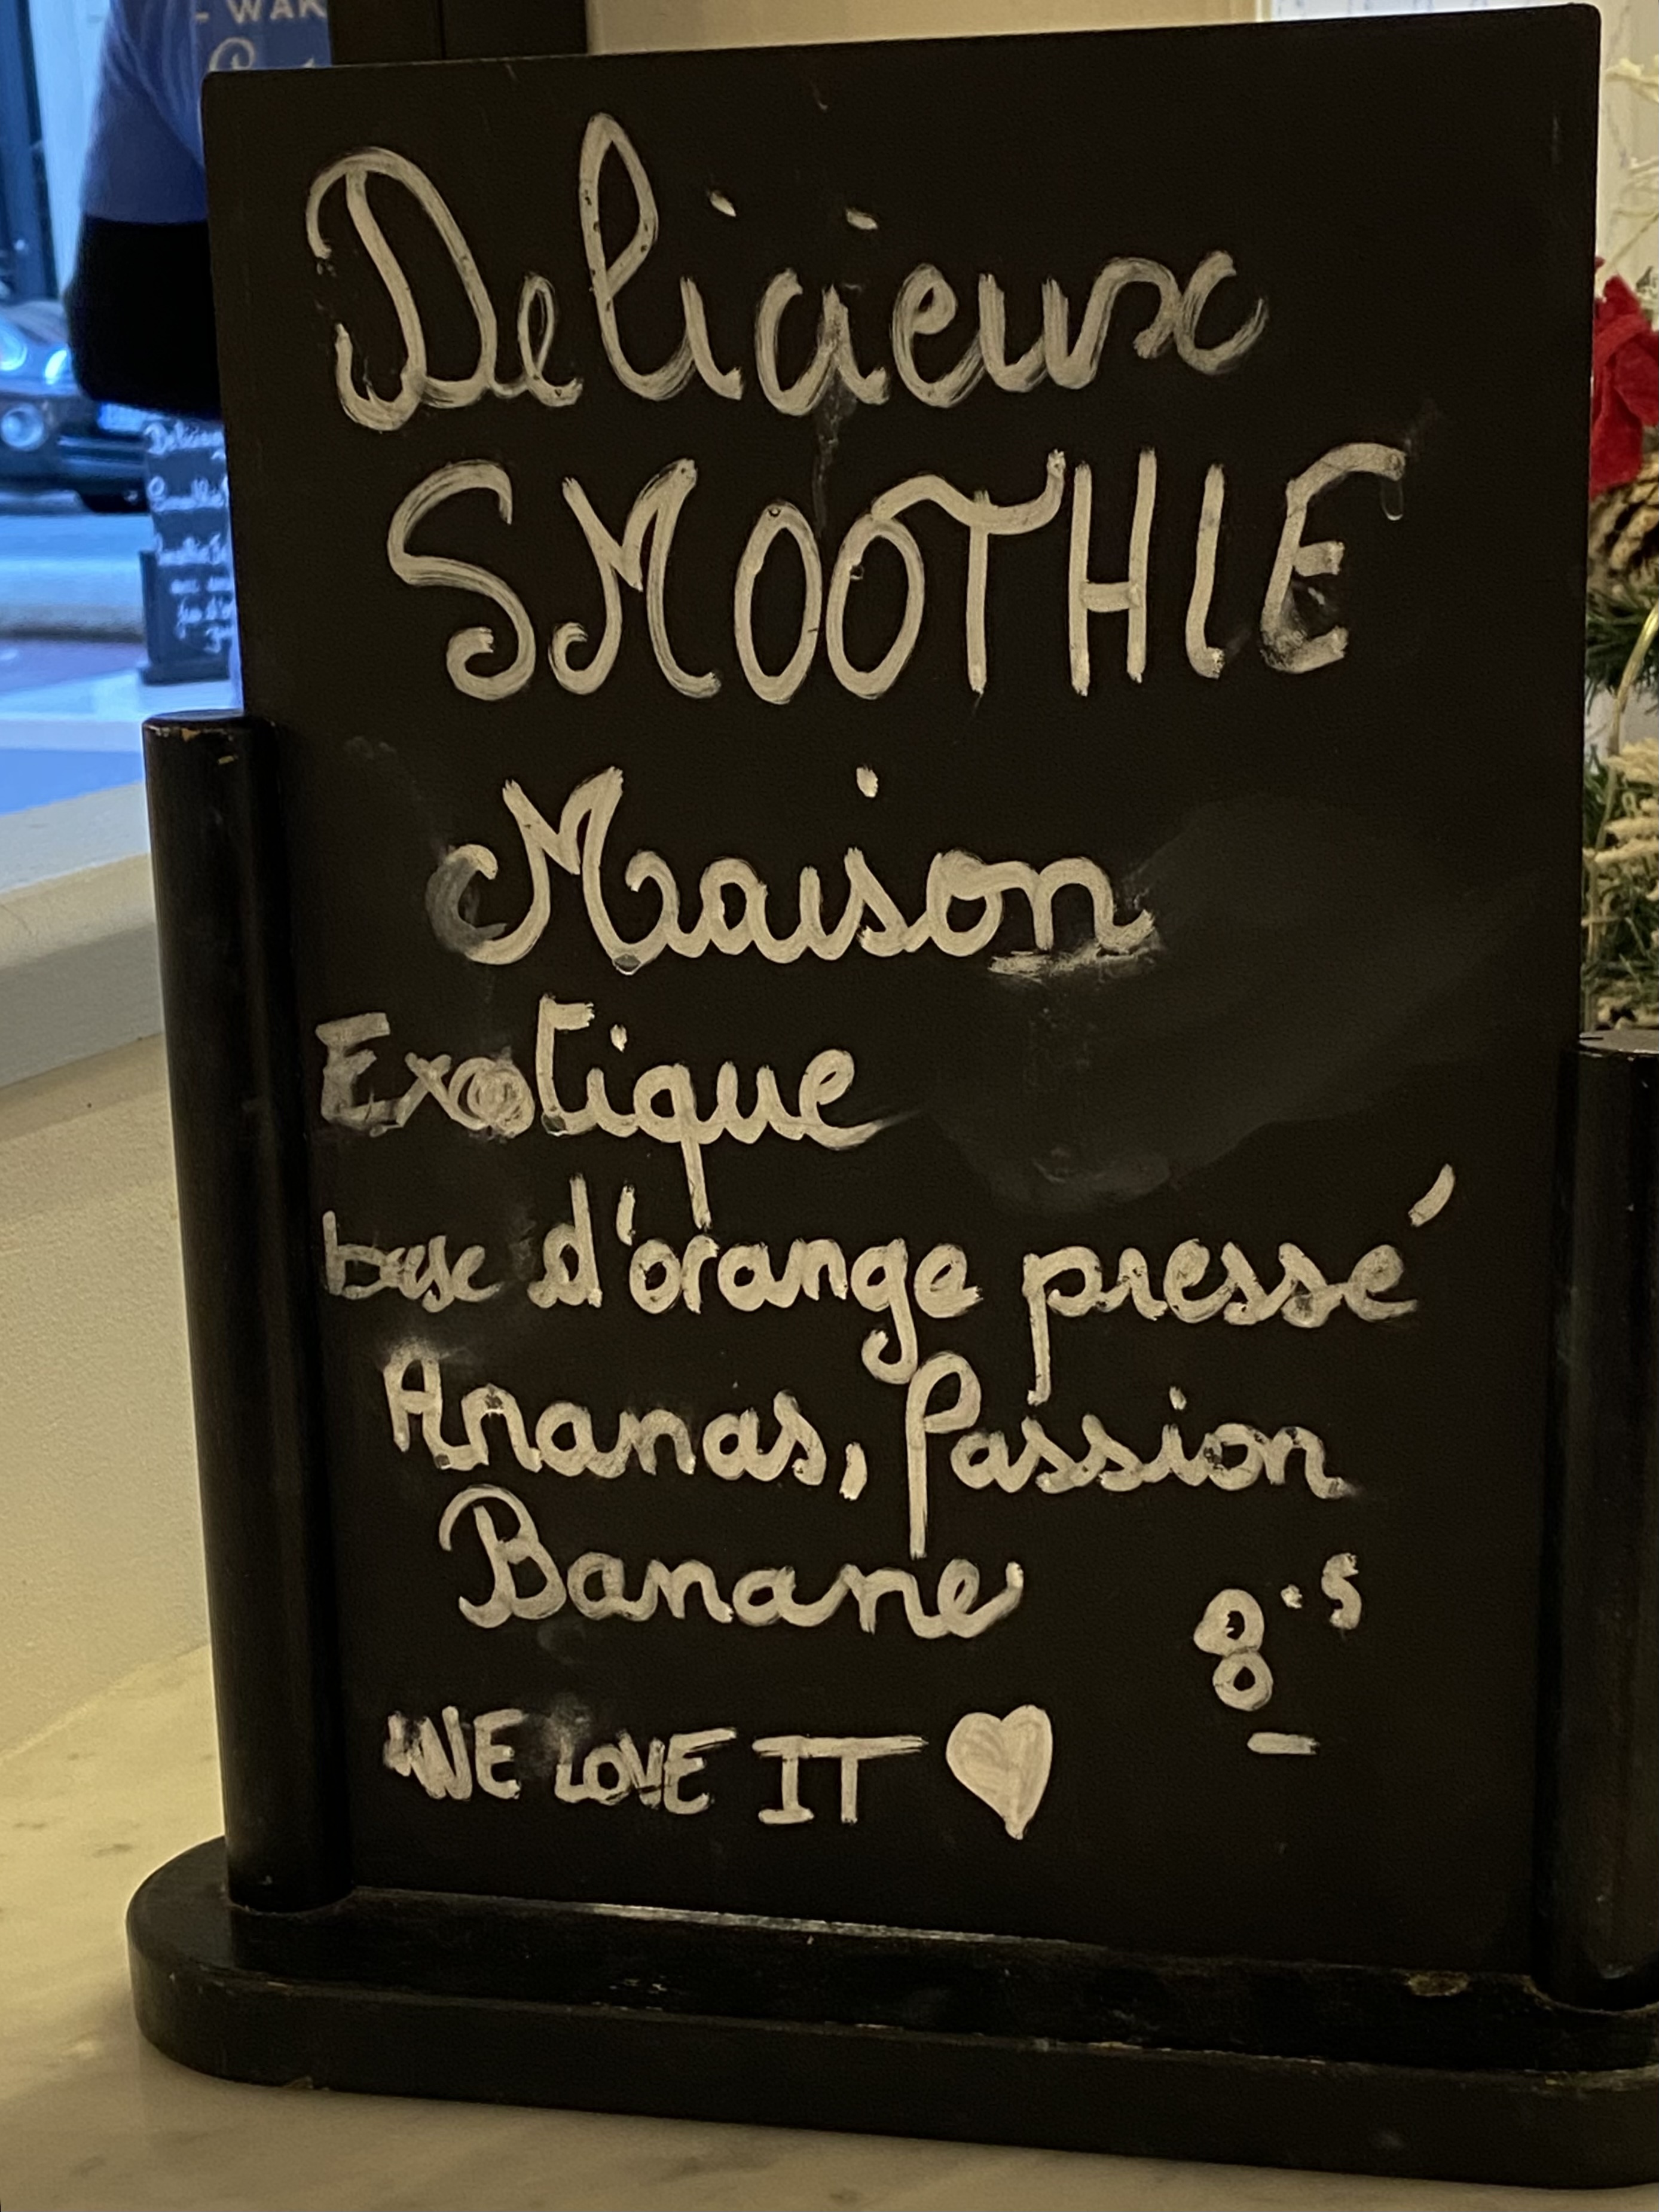 - WAK
Delicieux
SMOOTHIE
Maison
Exotique
base d'orange pressé
Ananas, Passion
Banane
8.5
WE LOVE IT